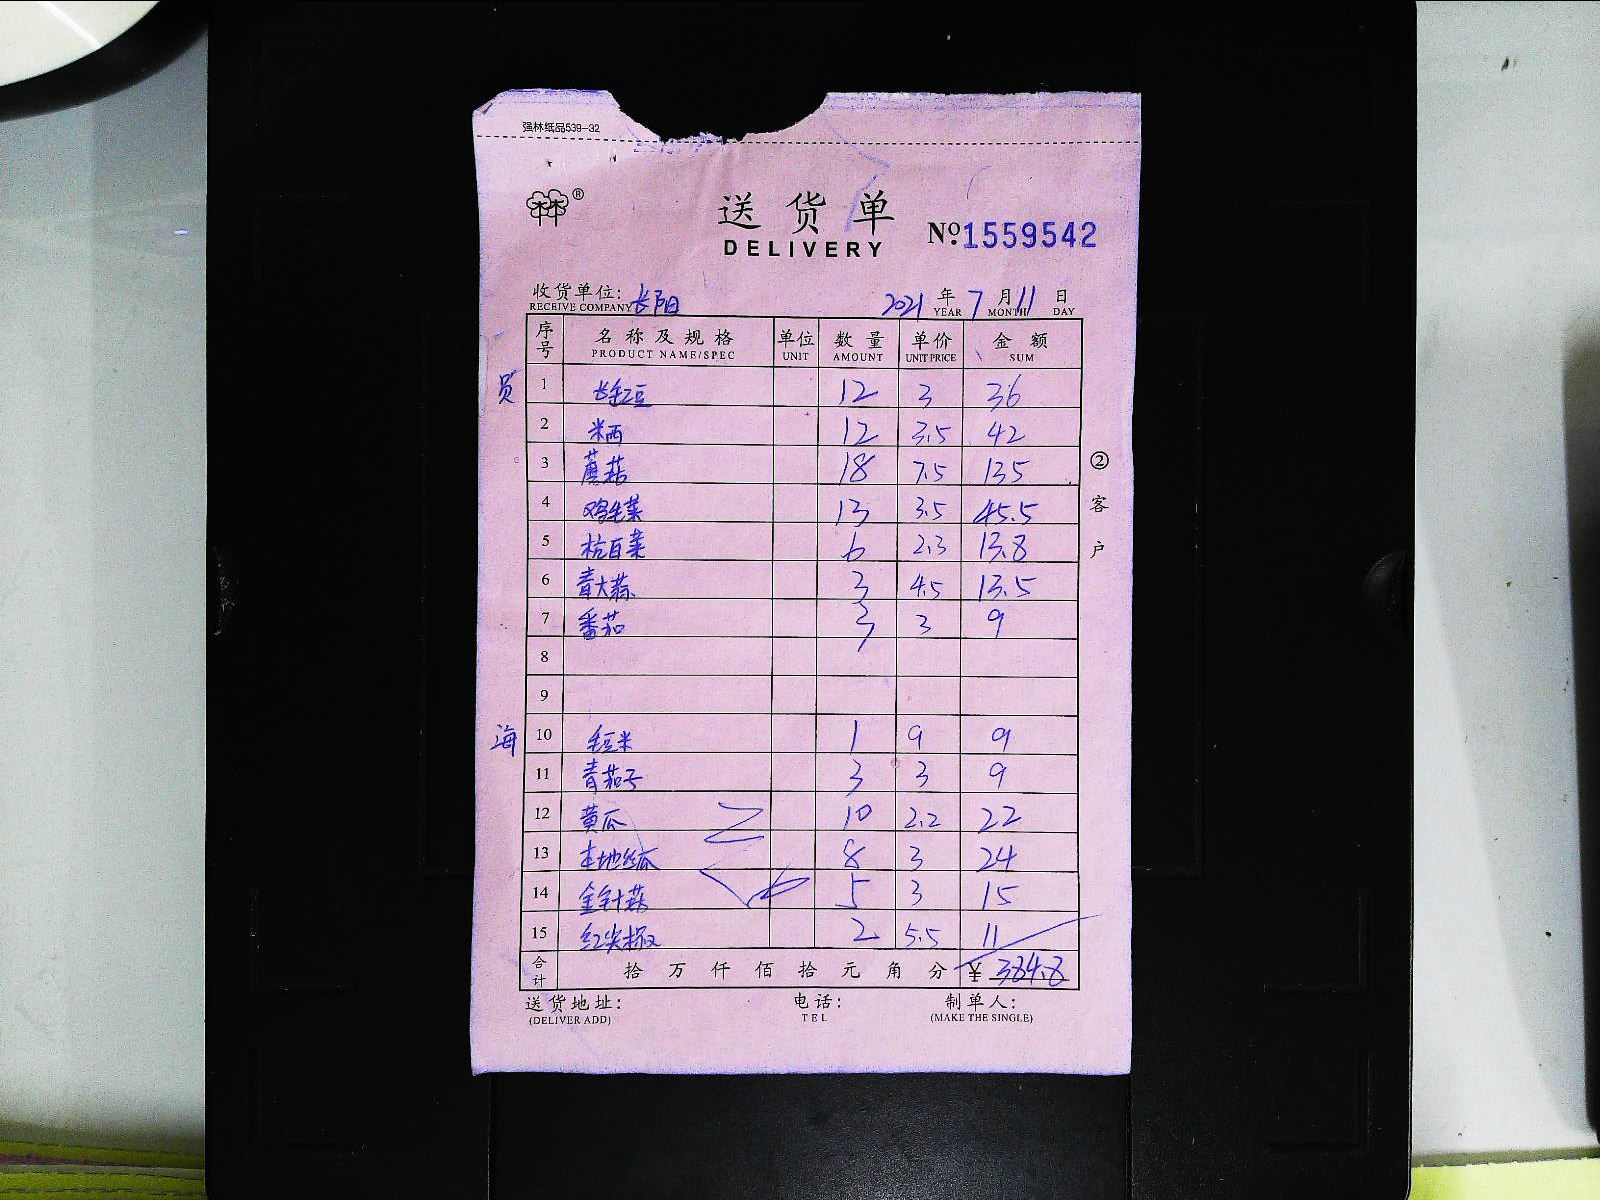 强林纸品539-32
林®
送货单
DELIVERY
№1559542
收货单位:长阳 2021年7月11日
RECEIVE COMPANY YEAR MONTH DAY
序号 名称及规格 单位 数量 单价 金额
PRODUCT NAME/SPEC UNIT AMOUNT UNIT PRICE SUM
员 1 长豇豆 12 3 36
2 米西 12 3.5 42
3 蘑菇 18 7.5 135
4 鸡毛菜 13 3.5 45.5
5 杭白菜 6 2.3 13.8
6 青大蒜 3 4.5 13.5
7 番茄 3 3 9
8
9
海 10 毛豆米 1 9 9
11 青茄子 3 3 9
12 黄瓜 10 2.2 22
13 本地丝瓜 8 3 24
14 金针菇 5 3 15
15 红尖椒 2 5.5 11
合计 拾万仟佰拾元角分 ¥384.8
②客户
送货地址: 电话: 制单人:
(DELIVER ADD) TEL (MAKE THE SINGLE)